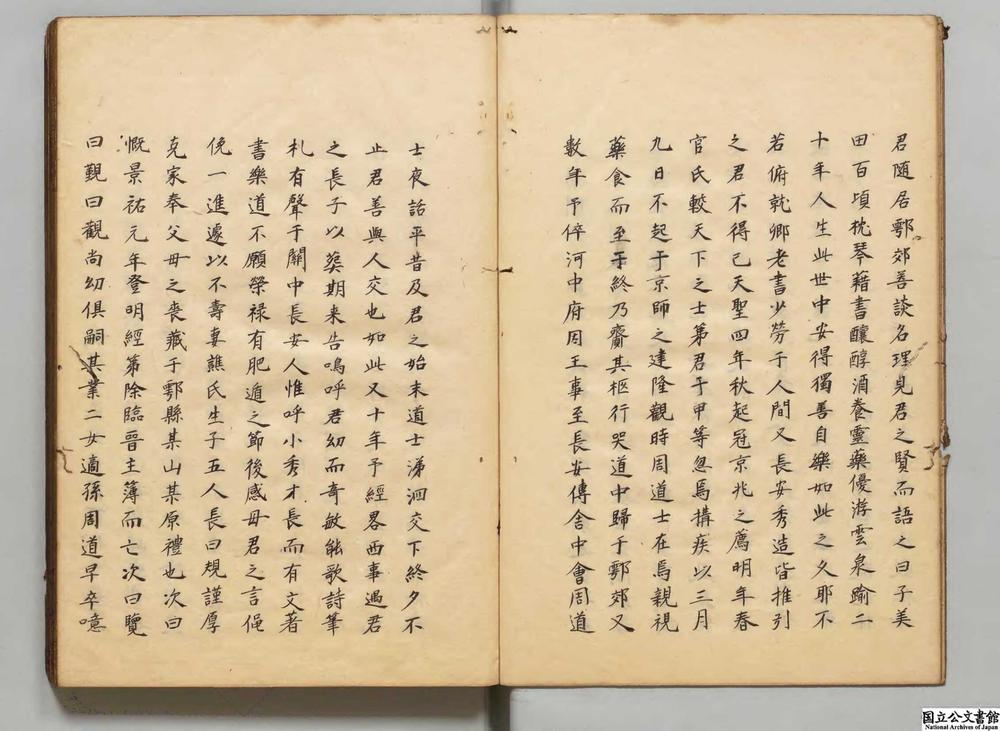 君随居鄠郊善談名理見君之賢而語之曰子美
田百頃枕琴藉書釀醇酒養靈藥優游雲泉踰二
十年人生此世中安得獨善自樂如此之久耶不
若俯就鄉老書少勞于人間又長安秀造皆推引
之君不得已天聖四年秋起冠京兆之薦明年春
官氏較天下之士第君于甲等忽焉搆疾以三月
九日不起于京師之建隆觀時周道士在焉親視
藥食而至于終乃齎其柩行哭道中歸于鄠郊又
數年予倅河中府因王事至長安傳舍中會周道
士夜話平昔及君之始末道士涕泗交下終夕不
止君善與人交也如此又十年予經畧西事遇君
之長子以葬期来告嗚呼君幼而奇敏能歌詩筆
札有聲于關中長安人惟呼小秀才長而有文著
書樂道不願榮禄有肥遁之節後感母君之言俛
俛一進遽以不壽妻譙氏生子五人長曰規謹厚
克家奉父母之喪藏于鄠縣某山某原禮也次曰
慨景祐元年登明經第除臨晉主簿而亡次曰覽
曰觀曰觀尚幼俱嗣其業二女適孫周道早卒噫
国立公文書館
National Archives of Japan